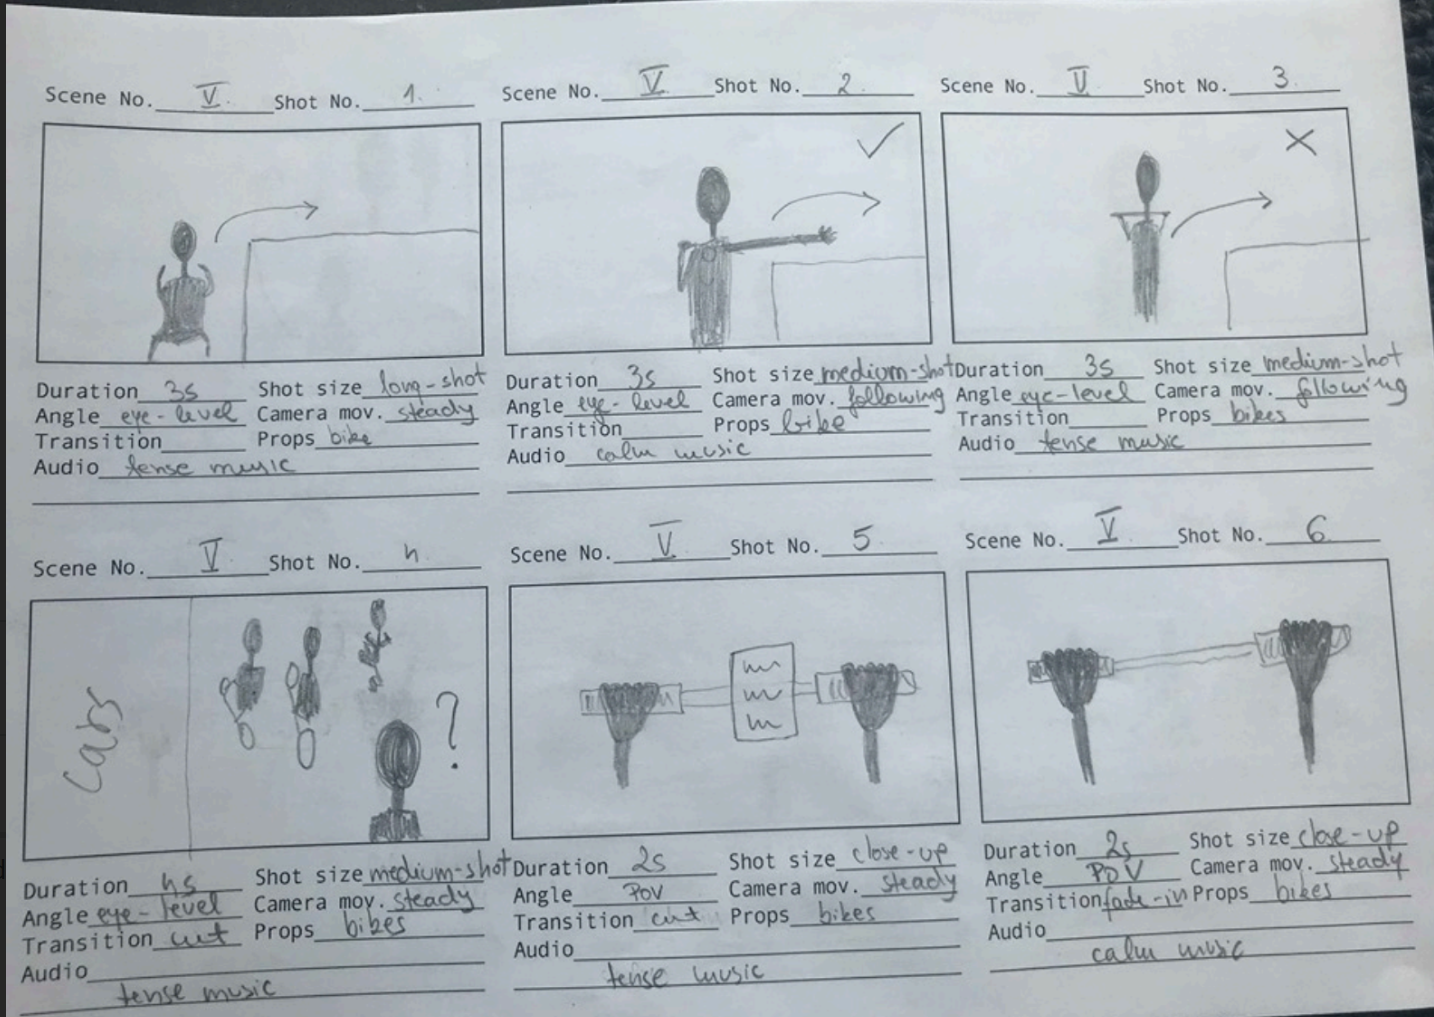 Scene No. V. Shot No. 1.
Scene No. V Shot No. 2
Scene No. V Shot No. 3.
Duration 3s Shot size long-shot
Angle eye-level Camera mov. steady
Transition Props bike
Audio tense music
Duration 3s Shot size medium-shot
Angle eye-level Camera mov. following
Transition Props bike
Audio calm music
Duration 3s Shot size medium-shot
Angle eye-level Camera mov. following
Transition Props bikes
Audio tense music
Scene No. V Shot No. 4.
Scene No. V Shot No. 5
Scene No. V Shot No. 6
cars
?
Duration 4s Shot size medium-shot
Angle eye-level Camera mov. steady
Transition cut Props bikes
Audio
tense music
Duration 2s Shot size close-up
Angle POV Camera mov. steady
Transition cut Props bikes
Audio
tense music
Duration 2s Shot size close-up
Angle POV Camera mov. steady
Transition fade-in Props bikes
Audio
calm music